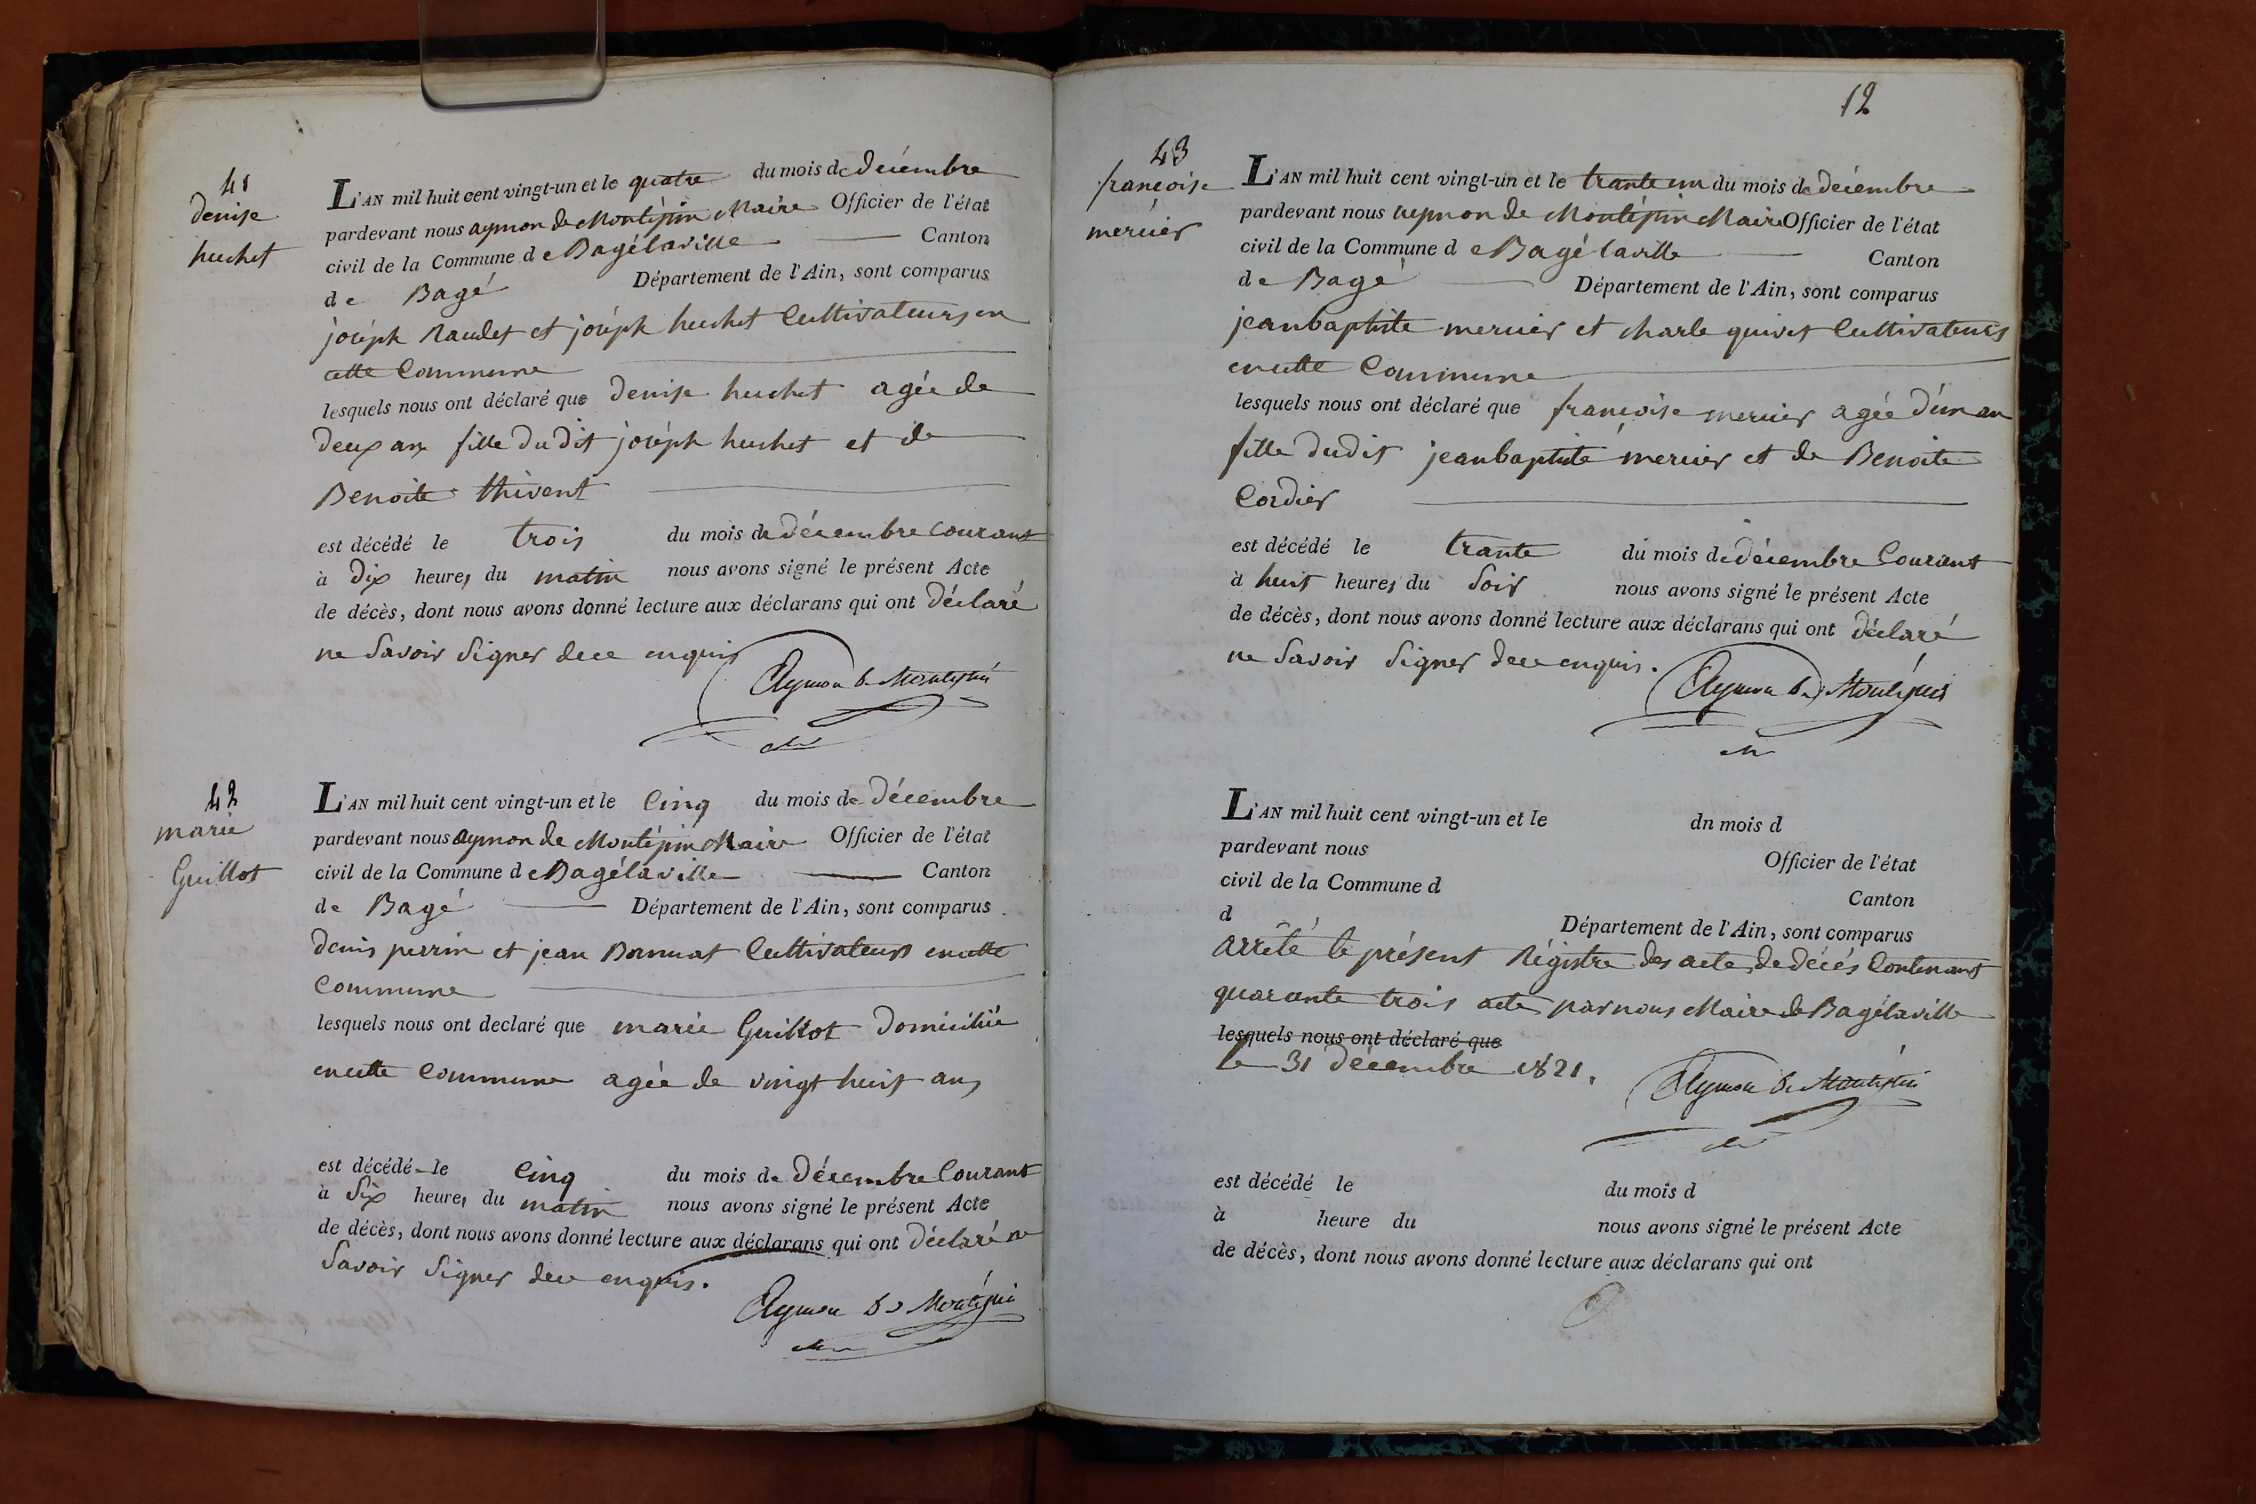 41
denise
huchet
L'AN mil huit cent vingt-un et le quatre du mois de décembre
pardevant nous aymon de Montépin Maire Officier de l'état
civil de la Commune de Bagélaville Canton
de Bagé Département de l'Ain, sont comparus
joséph Naudet et joséph huchet Cultivateurs en
cette Commune
lesquels nous ont déclaré que denise huchet agée de
deux ans fille du dit joséph huchet et de
Benoite thivent
est décédé le trois du mois de décembre courant
à dix heures du matin nous avons signé le présent Acte
de décès, dont nous avons donné lecture aux déclarans qui ont déclaré
ne Savoir Signer de ce enquis
Aymon de Montépin
42
marie
Guillot
L'AN mil huit cent vingt-un et le Cinq du mois de décembre
pardevant nous aymon de Montépin Maire Officier de l'état
civil de la Commune de Bagélaville Canton
de Bagé Département de l'Ain, sont comparus
denis perrin et jean Cultivateurs en cette
Commune
lesquels nous ont declaré que marie Guillot domiciliée
en cette Commune agée de vingt huit ans
est décédé le Cinq du mois de décembre Courant
à Six heures du matin nous avons signé le présent Acte
de décès, dont nous avons donné lecture aux déclarans qui ont déclaré ne
Savoir Signer de ce enquis.
Aymon de Montépin
12
43
françoise
mercier
L'AN mil huit cent vingt-un et le trante un du mois de décembre
pardevant nous aymon de Montépin Maire Officier de l'état
civil de la Commune de Bagélaville Canton
de Bagé Département de l'Ain, sont comparus
jeanbaptiste mercier et charle quivet Cultivateurs
en cette Commune
lesquels nous ont déclaré que françoise mercier agée d'un an
fille dudit jeanbaptiste mercier et de Benoite
Cordier
est décédé le trante du mois de décembre Courant
à huit heures du Soir nous avons signé le présent Acte
de décès, dont nous avons donné lecture aux déclarans qui ont déclaré
ne Savoir Signer de ce enquis.
Aymon de Montépin
L'AN mil huit cent vingt-un et le dn mois d
pardevant nous Officier de l'état
civil de la Commune d Canton
d Département de l'Ain, sont comparus
arrêté le présent Régistre des actes de décés Contenant
quarante trois actes par nous Maire de Bagélaville
lesquels nous ont déclaré que
le 31 décembre 1821.
Aymon de Montépin
est décédé le du mois d
à heure du nous avons signé le présent Acte
de décès, dont nous avons donné lecture aux déclarans qui ont